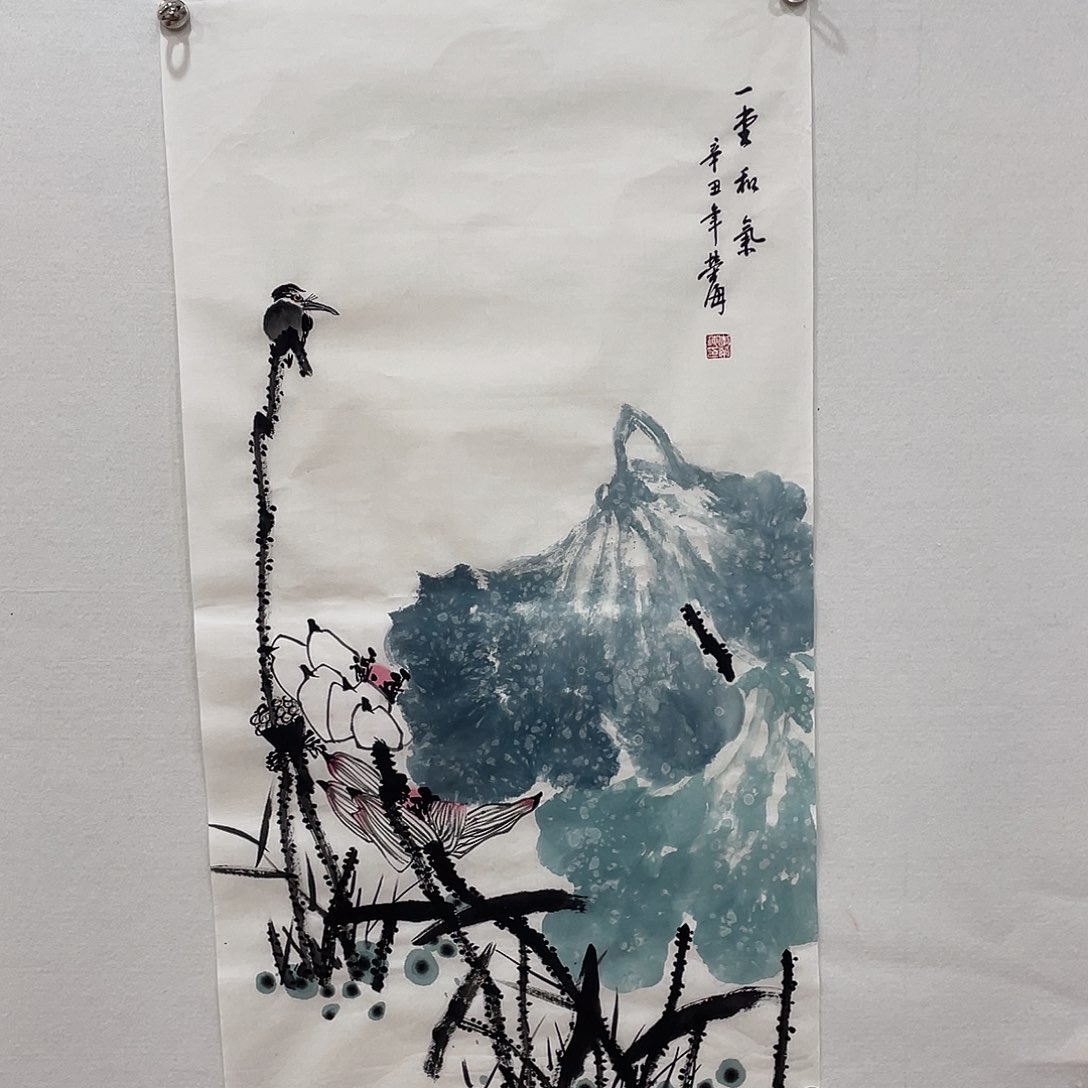 一堂和氣
辛丑年 榮海